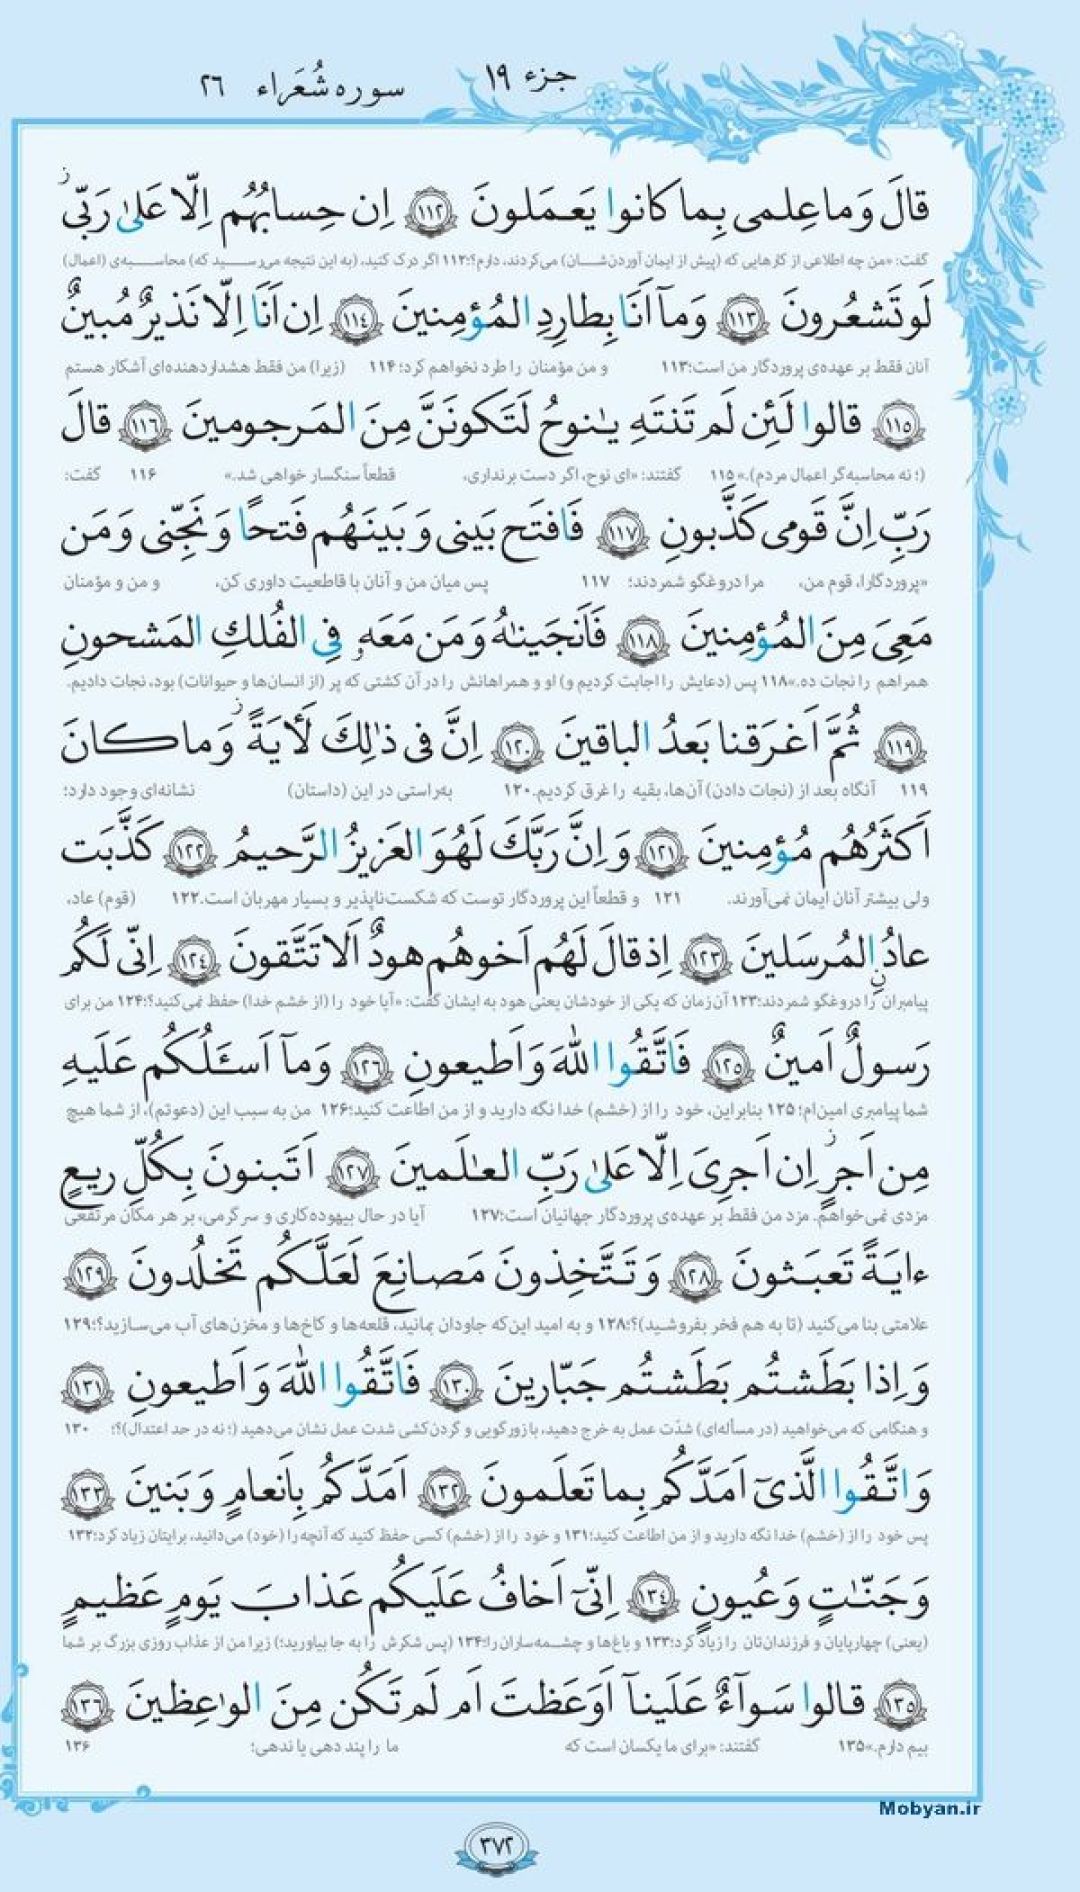 جزء ۱۹
سوره شُعَراء ۲۶
قالَ وَما عِلمی بِما کانوا یَعمَلونَ ﴿۱۱۲﴾ اِن حِسابُهُم اِلّا عَلیٰ رَبّی ز
گفت: «من چه اطلاعی از کارهایی که (پیش از ایمان آوردن‌شان) می‌کردند، دارم؟؛۱۱۲ اگر درک کنید، (به این نتیجه می‌رسید که) محاسبه‌ی (اعمال)
لَو تَشعُرونَ ﴿۱۱۳﴾ وَمآ اَنَا بِطارِدِ المُؤمِنینَ ﴿۱۱٤﴾ اِن اَنَا اِلّا نَذیرٌ مُبینٌ
آنان فقط بر عهده‌ی پروردگار من است؛۱۱۳ و من مؤمنان را طرد نخواهم کرد؛ ۱۱۴ (زیرا) من فقط هشداردهنده‌ای آشکار هستم
﴿۱۱۵﴾ قالوا لَئِن لَم تَنتَهِ یٰنوحُ لَتَکونَنَّ مِنَ المَرجومینَ ﴿۱۱٦﴾ قالَ
(؛ نه محاسبه‌گر اعمال مردم).» ۱۱۵ گفتند: «ای نوح، اگر دست برنداری، قطعاً سنگسار خواهی شد.» ۱۱۶ گفت:
رَبِّ اِنَّ قَومی کَذَّبونِ ﴿۱۱۷﴾ فَافتَح بَینی وَ بَینَهُم فَتحًا وَ نَجِّنی وَ مَن
«پروردگارا، قوم من، مرا دروغگو شمردند؛ ۱۱۷ پس میان من و آنان با قاطعیت داوری کن، و من و مؤمنان
مَعِیَ مِنَ المُؤمِنینَ ﴿۱۱۸﴾ فَاَنجَینٰهُ وَ مَن مَعَهو فِی الفُلکِ المَشحونِ
همراهم را نجات ده.» ۱۱۸ پس (دعایش را اجابت کردیم و) او و همراهانش را در آن کشتی که پر (از انسان‌ها و حیوانات) بود، نجات دادیم.
﴿۱۱۹﴾ ثُمَّ اَغرَقنا بَعدُ الباقینَ ﴿۱۲۰﴾ اِنَّ فی ذٰلِکَ لَأیَةً ز وَما کانَ
۱۱۹ آنگاه بعد از (نجات دادن) آن‌ها، بقیه را غرق کردیم. ۱۲۰ به‌راستی در این (داستان) نشانه‌ای وجود دارد؛
اَکثَرُهُم مُؤمِنینَ ﴿۱۲۱﴾ وَ اِنَّ رَبَّکَ لَهُوَ العَزیزُ الرَّحیمُ ﴿۱۲۲﴾ کَذَّبَت
ولی بیشتر آنان ایمان نمی‌آورند. ۱۲۱ و قطعاً این پروردگار توست که شکست‌ناپذیر و بسیار مهربان است. ۱۲۲ (قوم) عاد،
عادُنِ المُرسَلینَ ﴿۱۲۳﴾ اِذ قالَ لَهُم اَخوهُم هودٌ اَلا تَتَّقونَ ﴿۱۲٤﴾ اِنّی لَکُم
پیامبران را دروغگو شمردند؛۱۲۳ آن زمان که یکی از خودشان یعنی هود به ایشان گفت: «آیا خود را (از خشم خدا) حفظ نمی‌کنید؟؛۱۲۴ من برای
رَسولٌ اَمینٌ ﴿۱۲۵﴾ فَاتَّقُوا اللهَ وَ اَطیعونِ ﴿۱۲٦﴾ وَمآ اَسـَٔلُکُم عَلَیهِ
شما پیامبری امین‌ام؛ ۱۲۵ بنابراین، خود را از (خشم) خدا نگه دارید و از من اطاعت کنید؛۱۲۶ من به سبب این (دعوتم)، از شما هیچ
مِن اَجرٍ ز اِن اَجرِیَ اِلّا عَلیٰ رَبِّ العٰلَمینَ ﴿۱۲۷﴾ اَتَبنونَ بِکُلِّ ریعٍ
مزدی نمی‌خواهم. مزد من فقط بر عهده‌ی پروردگار جهانیان است؛۱۲۷ آیا در حال بیهوده‌کاری و سرگرمی، بر هر مکان مرتفعی
ءایَةً تَعبَثونَ ﴿۱۲۸﴾ وَ تَتَّخِذونَ مَصانِعَ لَعَلَّکُم تَخلُدونَ ﴿۱۲۹﴾
علامتی بنا می‌کنید (تا به هم فخر بفروشید)؟؛۱۲۸ و به امید این‌که جاودان بمانید، قلعه‌ها و کاخ‌ها و مخزن‌های آب می‌سازید؟؛۱۲۹
وَ اِذا بَطَشتُم بَطَشتُم جَبّارینَ ﴿۱۳۰﴾ فَاتَّقُوا اللهَ وَ اَطیعونِ ﴿۱۳۱﴾
و هنگامی که می‌خواهید (در مسأله‌ای) شدّت عمل به خرج دهید، با زورگویی و گردن‌کشی شدت عمل نشان می‌دهید (؛ نه در حد اعتدال)؟؛ ۱۳۰
وَ اتَّقُوا الَّذیٓ اَمَدَّکُم بِما تَعلَمونَ ﴿۱۳۲﴾ اَمَدَّکُم بِاَنعامٍ وَ بَنینَ ﴿۱۳۳﴾
پس خود را از (خشم) خدا نگه دارید و از من اطاعت کنید؛۱۳۱ و خود را از (خشم) کسی حفظ کنید که آنچه را (خود) می‌دانید، برایتان زیاد کرد؛۱۳۲
وَ جَنّٰتٍ وَ عُیونٍ ﴿۱۳٤﴾ اِنّیٓ اَخافُ عَلَیکُم عَذابَ یَومٍ عَظیمٍ
(یعنی) چهارپایان و فرزندان‌تان را زیاد کرد؛۱۳۳ و باغ‌ها و چشمه‌ساران را؛۱۳۴ (پس شکرش را به جا بیاورید؛) زیرا من از عذاب روزی بزرگ بر شما
﴿۱۳۵﴾ قالوا سَوآءٌ عَلَینآ اَوَعَظتَ اَم لَم تَکُن مِنَ الوٰعِظینَ ﴿۱۳٦﴾
بیم دارم.» ۱۳۵ گفتند: «برای ما یکسان است که ما را پند دهی یا ندهی؛ ۱۳۶
Mobyan.ir
۳۷۲